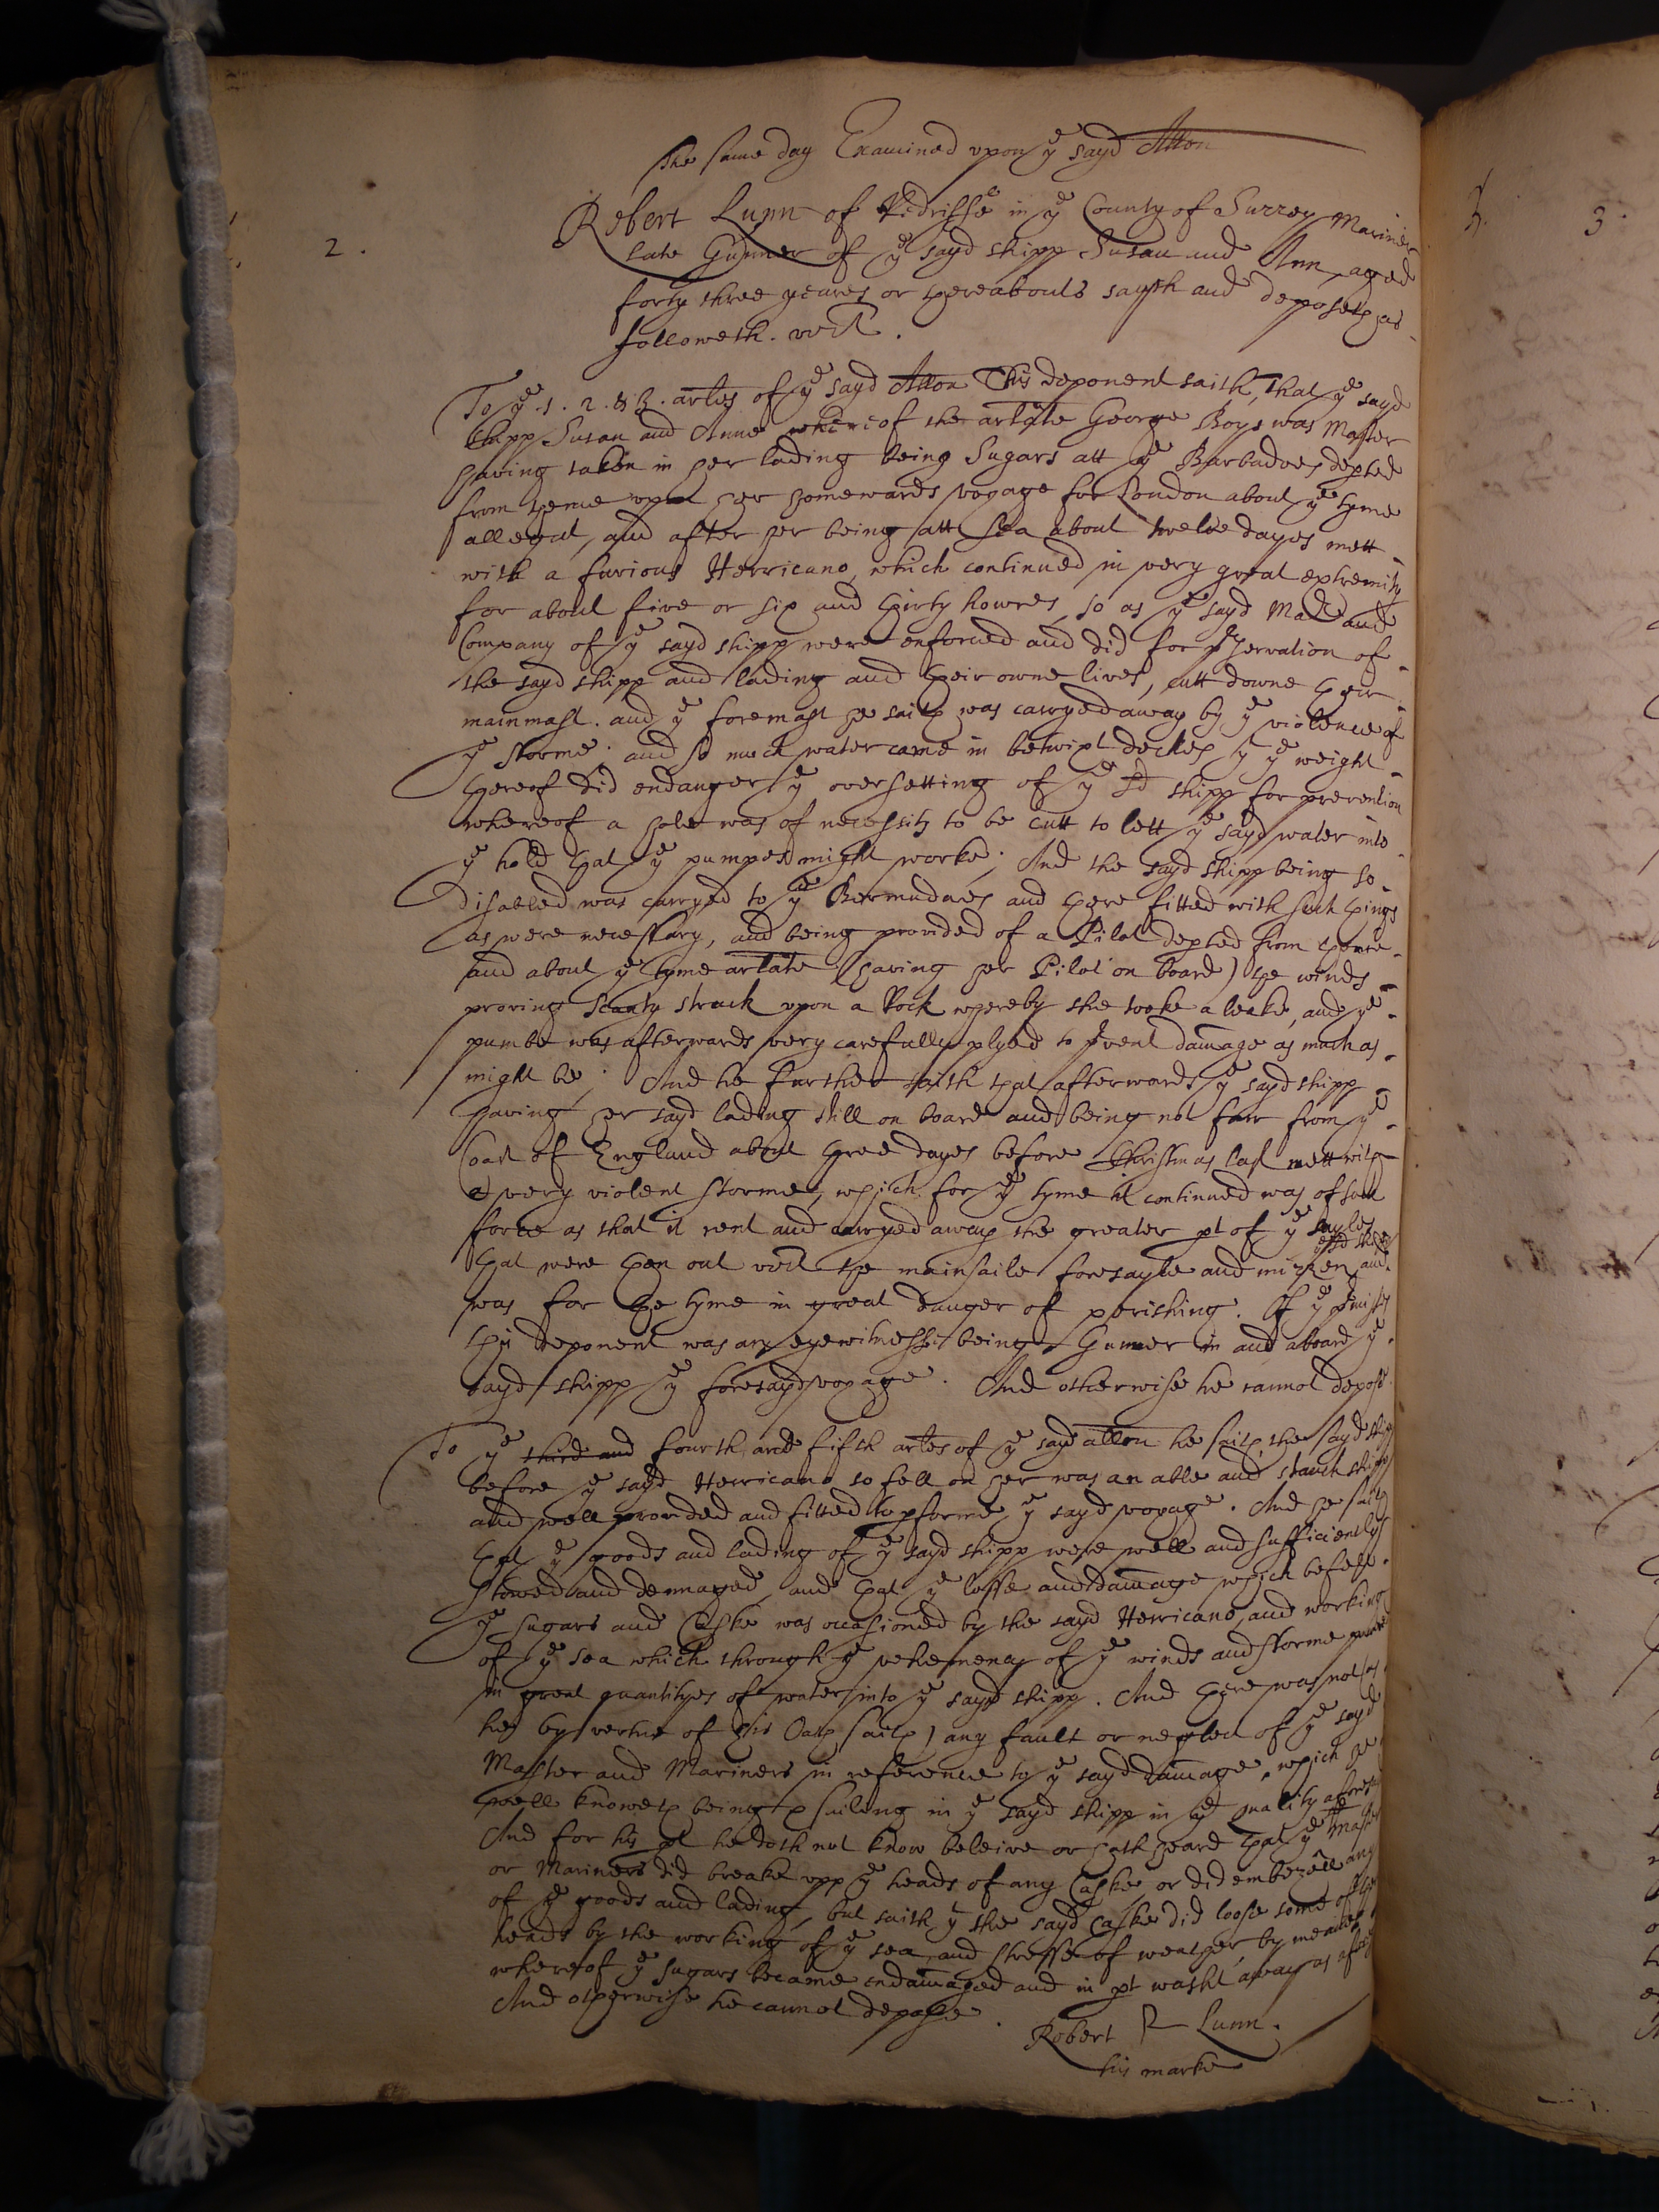 The same day Examined upon ye sayd Allon
2.
Robert Lunn of Redriffe in ye County of Surrey Mariner
late Gunner of ye sayd shipp Susan and Ann, aged
forty three yeares or thereabouts sayth and deposeth as
followeth. vizt.
To ye .1. 2. & 3. artles of ye sayd Allon This deponent saith, That ye sayd
shipp Susan and Anne whereof the artlate George Boys was Master
having taken in her lading being Sugars att ye Barbadoes depted
from thence upon her homewards voyage for London about ye tyme
allegat, and after her being att Sea about twelve dayes mett
with a furious Herricano, which continued in very great extremity
for about five or six and thirty howres, so as ye sayd Mar and
Company of ye sayd shipp were enforced and did for pservation of
the sayd shipp and lading and their owne lives, cutt downe their
mainmast. and ye foremast he saith was carryed away by ye violence of
ye storme; and so much water came in betwixt deckes yt ye weight
thereof did endanger ye oversetting of ye sd shipp for prevention
whereof a hole was of necessity to be cutt to lett ye sayd water into
ye hold that ye pumpes might worke; And the sayd shipp being so
disabled was carryed to ye Bermudaes and there fitted with such things
as were necessary, and being provided of a Pilot depted from thence
and about ye tyme artlate (having her Pilot on board) the winds
proving scanty struck upon a Rock whereby she tooke a leake, and ye
pumbe was afterwards very carefully plyed to pvent damage as much as
might be; And he further saith that afterwards ye sayd shipp
having her sayd lading still on board and being not farr from ye
Coast of England about three dayes before Christmas last mett with
a very violent storme, which for ye tyme it continued was of such
force as that it rent and carryed away the greater pt of ye sayles
that were then out vizt the mainsaile foresayle and mizzen, and
ye sd shipp
was for the tyme in great danger of perishing. Of ye pmisses
this deponent was an eyewitnesse being Gunner in and aboard ye
sayd shipp ye foresayd voyage. And otherwise he cannot depose.
To ye third and fourth and fifth artles of ye sayd allon he saith, the sayd shipp
before ye sayd Herricano so fell on her was an able and stanch shipp
and well provided and fitted to pforme ye sayd voyage. And he saith
that ye goods and lading of ye sayd shipp were well and sufficiently
stowed and dennaged, and that ye losse and damage which befell
ye sugars and Caske was occasioned by the sayd Herricano, and working
of ye sea which through ye vehemency of ye winds and storme
in great quantityes of water into ye sayd shipp. And there was not (as
he by vertue of his Oath saith) any fault or neglect of ye sayd
Master and Mariners in reference to ye sayd damage, which he
well knoweth being sailing in ye sayd shipp in ye quality aforesd
And for his pt he doth not know beleive or hath heard that ye Master
or Mariners did breake upp ye heads of any Caske, or did embezell any
of ye goods and lading, but saith yt the sayd Caske did loose some of their
heads by the working of ye sea, and stresse of weather, by meanes
whereof ye sugars became endamaged and in pt washt away as aforesd
And otherwise he cannot depose.
Robert R Lunn.
his marke
3.